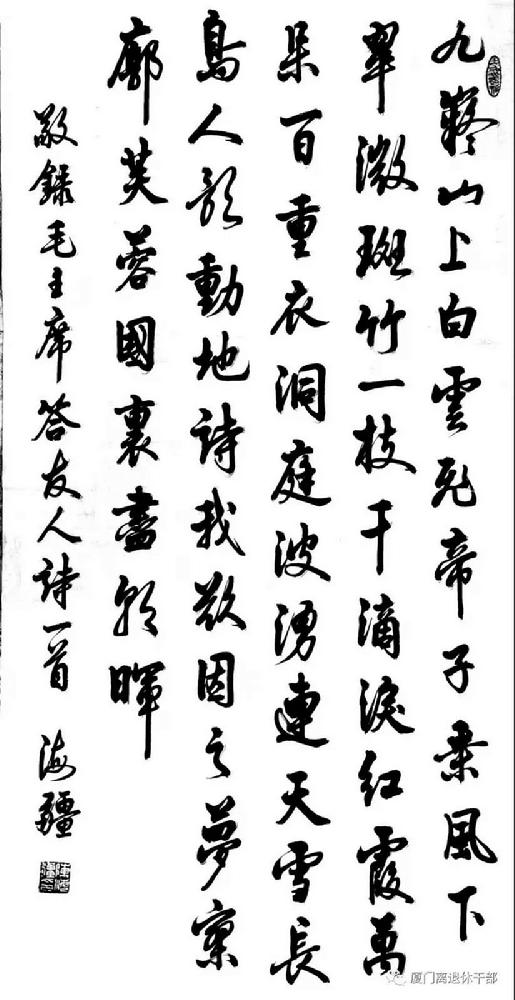 九嶷山上白雲飛帝子乘風下
翠微斑竹一枝千滴淚紅霞萬
朵百重衣洞庭波湧連天雪長
島人歌動地詩我欲因之夢寥
廓芙蓉國裏盡朝暉
敬錄毛主席答友人詩一首 海疆
厦门离退休干部